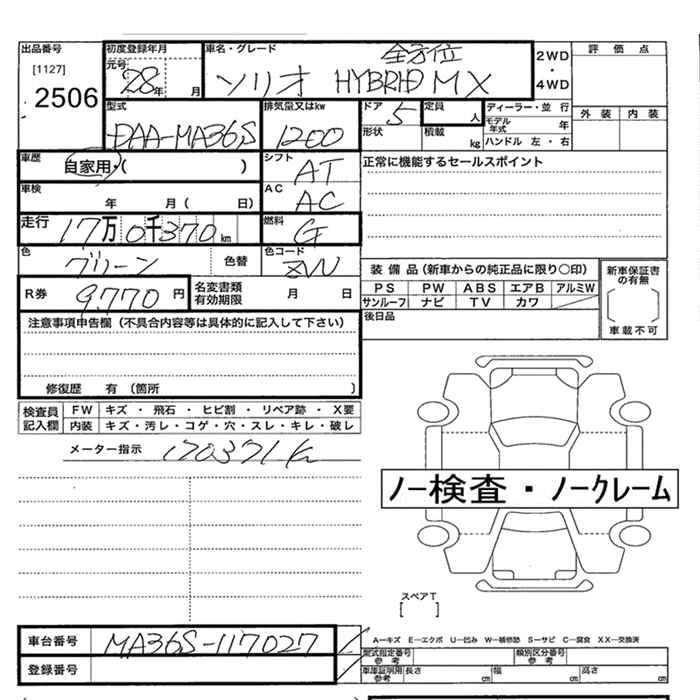 出品番号 初度登録年月 車名・グレード 全方位 2WD・4WD 評価点
[1127] 元号 28年 月 ソリオ HYBRID MX
2506 外装 内装
型式 排気量又はkw ドア 5 定員 人 ディーラー・並行
DAA-MA36S 1200 形状 積載 kg モデル年式 年
ハンドル 左・右
車歴 自家用・( ) シフト AT 正常に機能するセールスポイント
車検 年 月( 日) AC AC
走行 17万0千370km 燃料 G
色 グリーン 色替 色コード ZVV
装備品(新車からの純正品に限り○印) 新車保証書の有無
R券 9,770円 名変書類有効期限 月 日 PS PW ABS エアB アルミW
サンルーフ ナビ TV カワ 車載不可
注意事項申告欄(不具合内容等は具体的に記入して下さい) 後日品
修復歴 有 (箇所 )
検査員記入欄 FW キズ・飛石・ヒビ割・リペア跡・X要
内装 キズ・汚レ・コゲ・穴・スレ・キレ・破レ
メーター指示 170371K
ノー検査・ノークレーム
スペアT
[ ]
車台番号 MA36S-117027 A—キズ E—エクボ U—凹み W—補修跡 S—サビ C—腐食 XX—交換済
型式指定番号 参考 類別区分番号 参考
登録番号 車庫証明用 参考 長さ cm 幅 cm 高さ cm